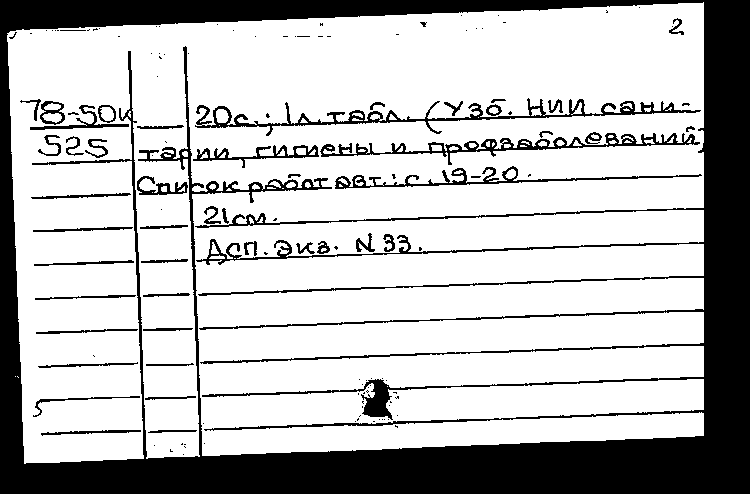 2
78-50к 20с.; 1л. табл. (Узб. НИИ сани-
525 тарии, гигиены и профзаболеваний)
Список работ авт.: с. 19-20.
21см.
Дсп. Экз. N 33.
5